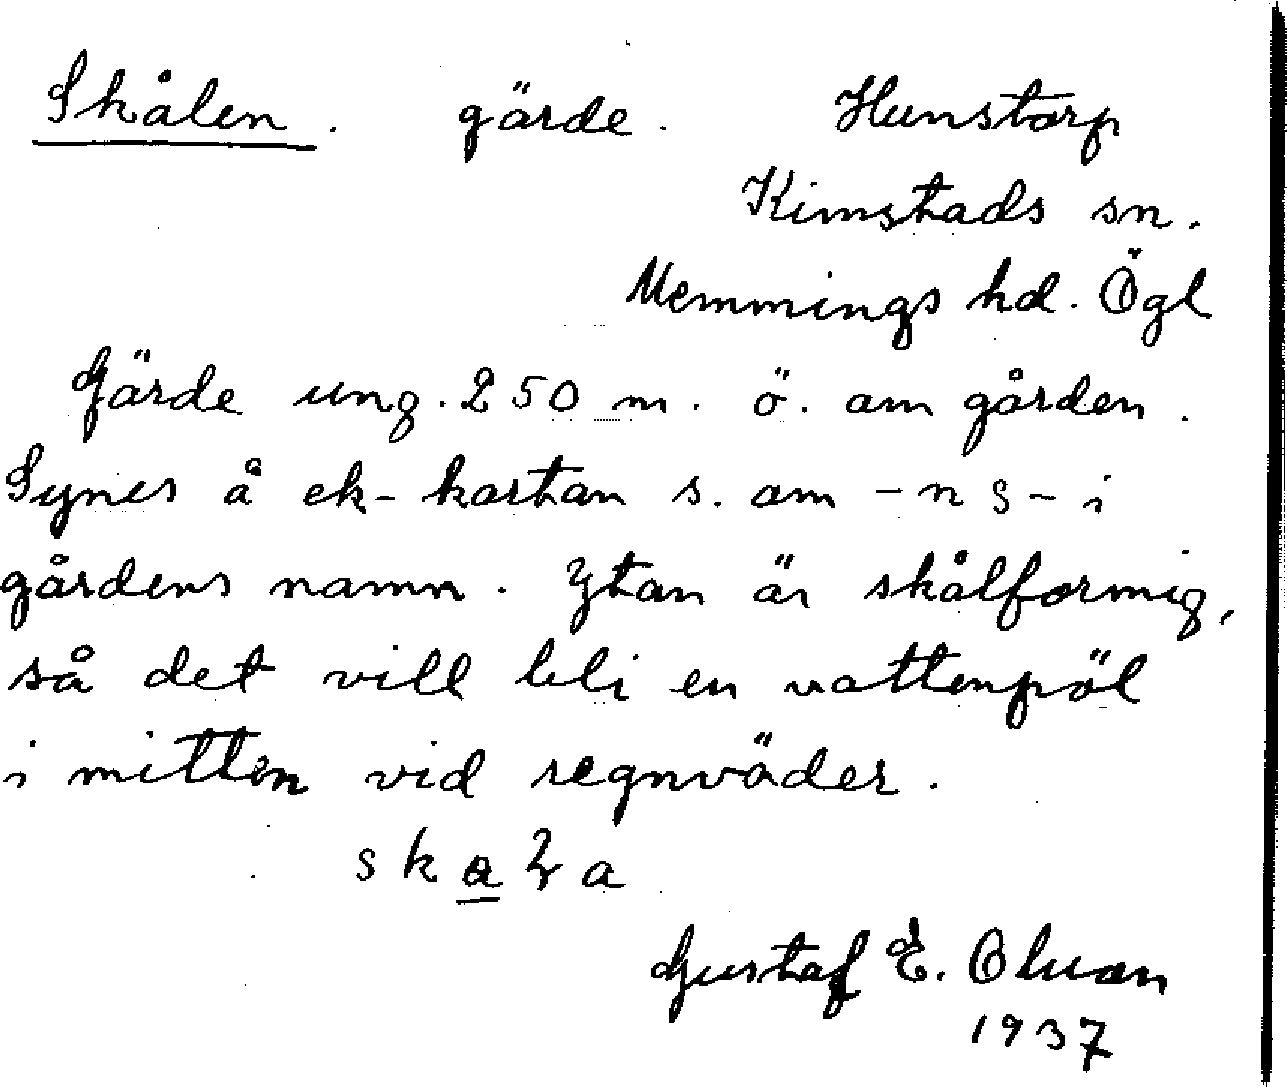 Skålen. gärde. Hunstorp
Kimstads sn.
Memmings hd. Ögl
Gärde ung. 250 m. ö. om gården.
Synes å ek-kartan s. om -ns- i
gårdens namn. Ytan är skålformig,
så det vill bli en vattenpöl
i mitten vid regnväder.
Gustaf E.
1937